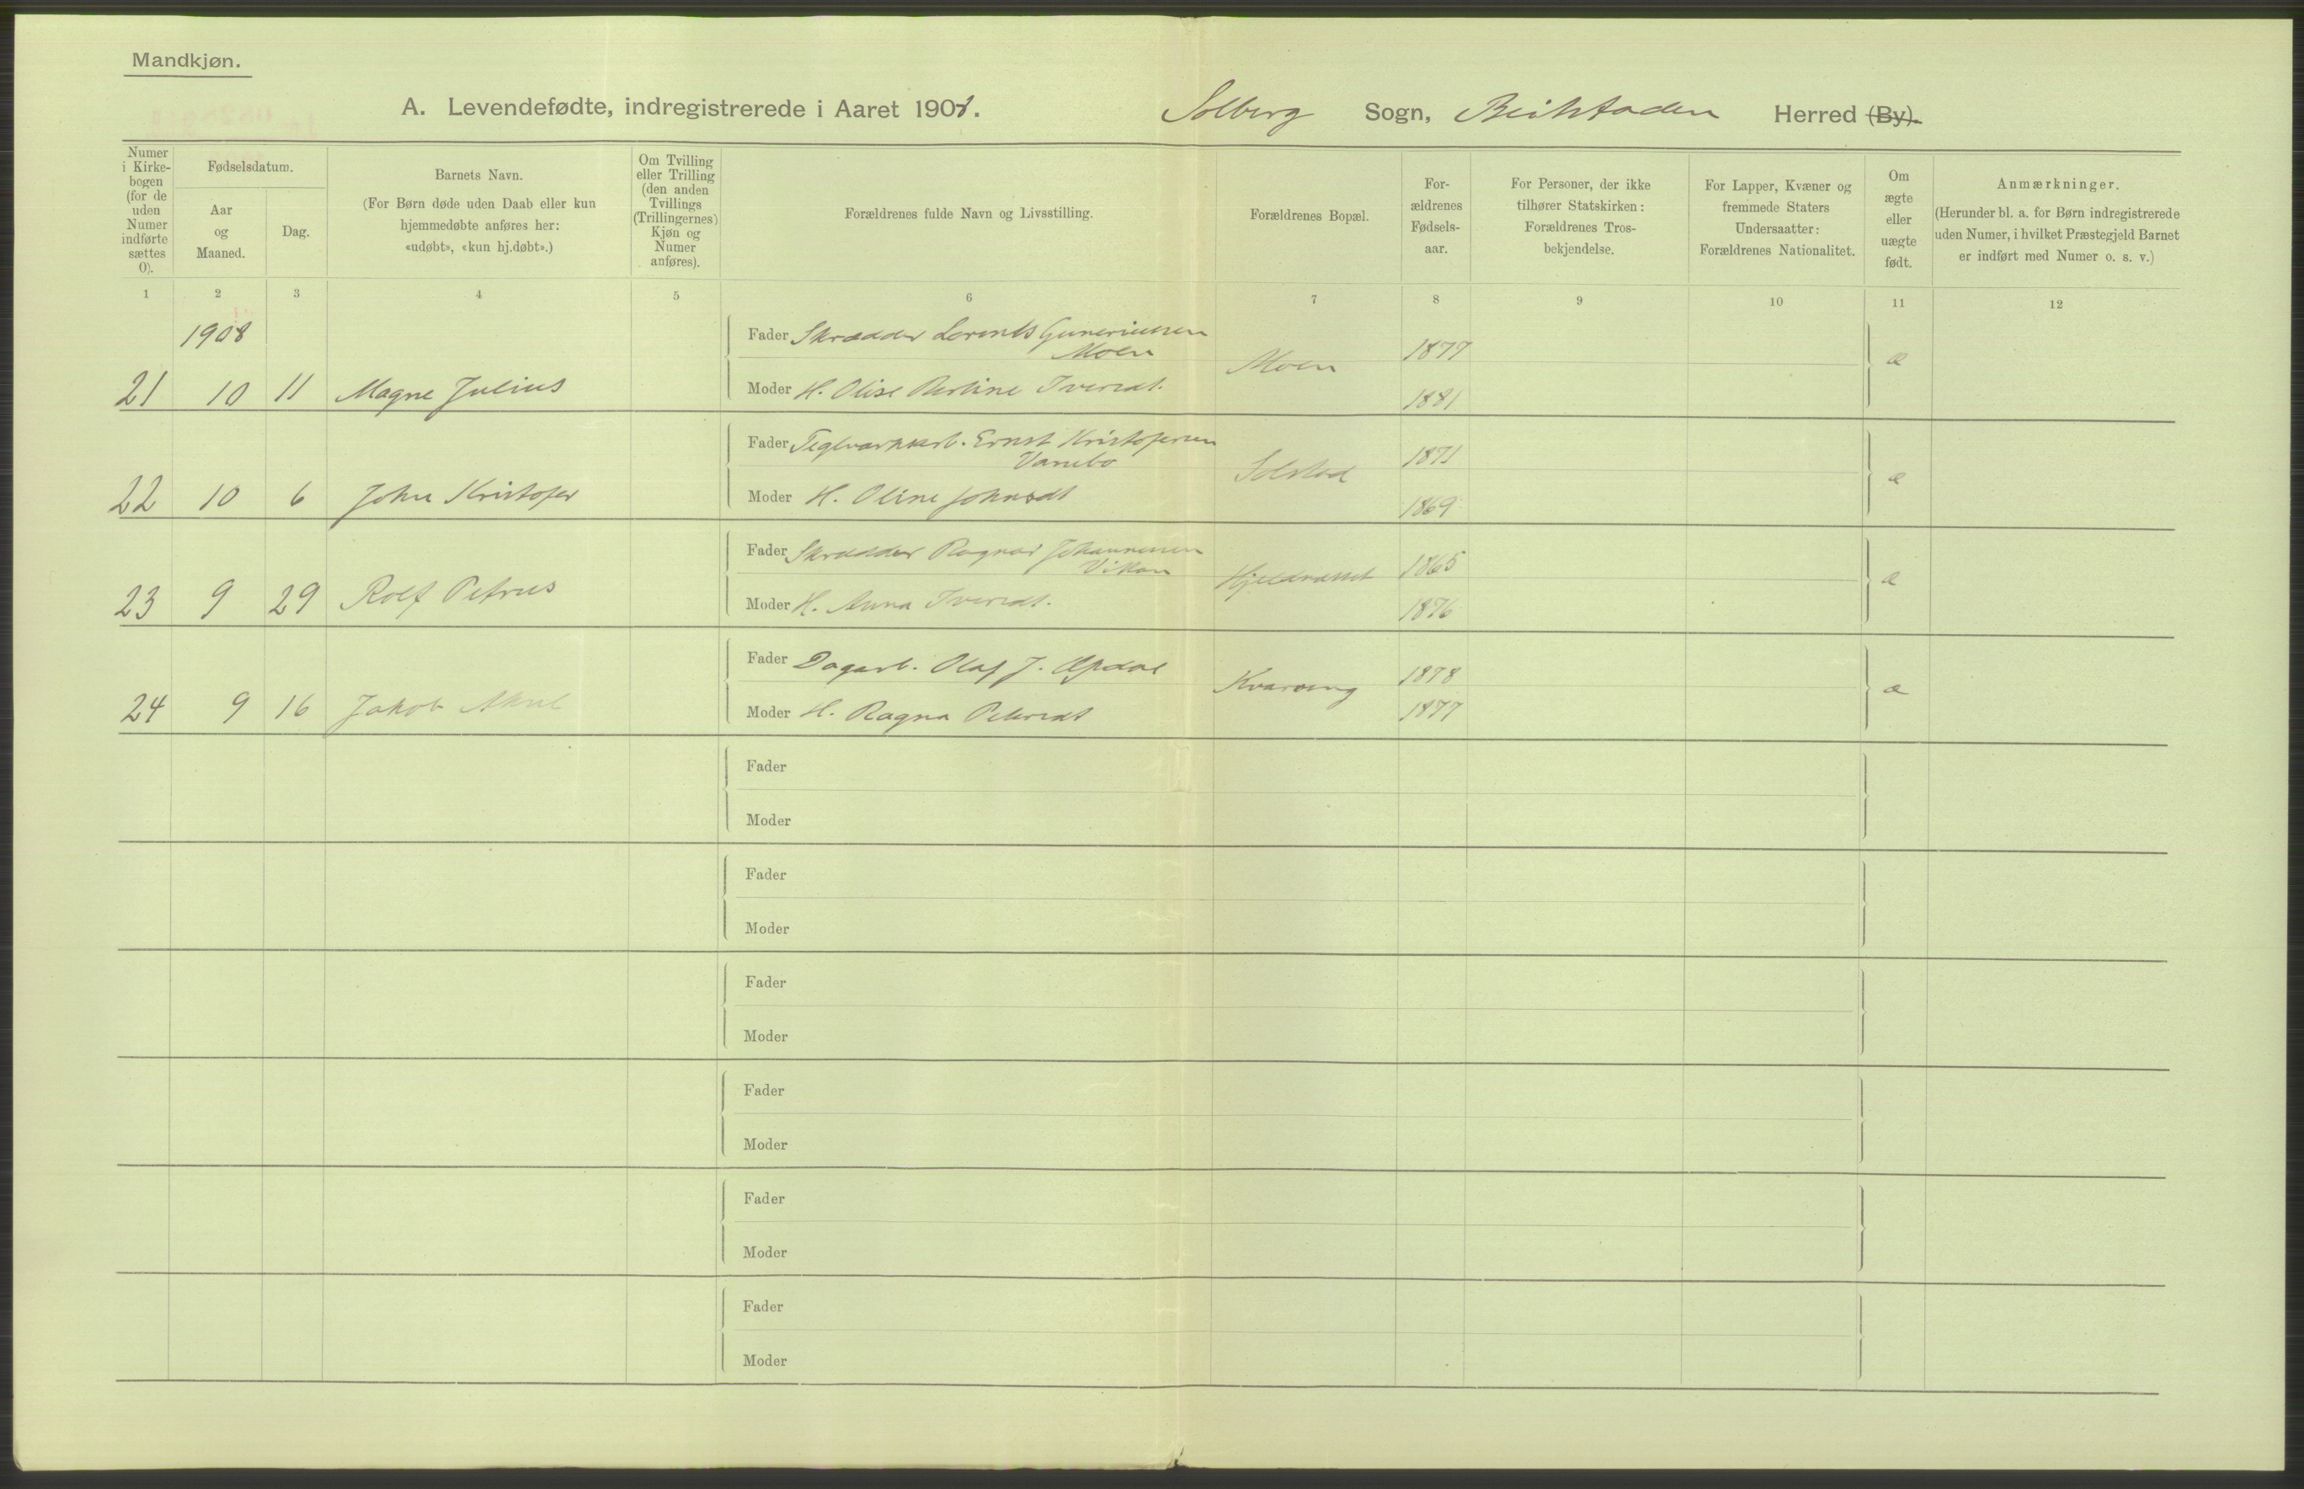 Mandkjøn.
A. Levendefødte, indregistrerede i Aaret 1908. Solberg Sogn, Beitstaden Herred (By).
Numer i Kirkebogen (for de uden Numer indførte sættes 0).
Fødselsdatum.
Aar og Maaned.
Dag.
Barnets Navn.
(For Børn døde uden Daab eller kun hjemmedøbte anføres her: «udøbt», «kun hj.døbt».)
Om Tvilling eller Trilling (den anden Tvillings (Trillingernes) Kjøn og Numer anføres).
Forældrenes fulde Navn og Livsstilling.
Forældrenes Bopæl.
Forældrenes Fødselsaar.
For Personer, der ikke tilhører Statskirken: Forældrenes Trosbekjendelse.
For Lapper, Kvæner og fremmede Staters Undersaatter: Forældrenes Nationalitet.
Om ægte eller uægte født.
Anmærkninger.
(Herunder bl. a. for Børn indregistrerede uden Numer, i hvilket Præstegjeld Barnet er indført med Numer o. s. v.)
1 2 3 4 5 6 7 8 9 10 11 12
1908 Fader Skrædder Lorents Guneriussen
Moen Moen 1877 æ
21 10 11 Magne Julius Moder H. Olise Berline Iversdt. 1881
Fader Teglværksarb. Ernst Kristofersen
Vanebo Solstad 1871 æ
22 10 6 John Kristofer Moder H. Oline Johnsdt 1869
Fader Skrædder Ragnar Johannessen
Vikan 1865 æ
23 9 29 Rolf Petrus Moder H. Anna Iversdt. 1876
Fader Dagarb. Olaf J. Opdal Kvarving 1878 æ
24 9 16 Jakob Moder H. Ragna Petersdt 1877
Fader
Moder
Fader
Moder
Fader
Moder
Fader
Moder
Fader
Moder
Fader
Moder